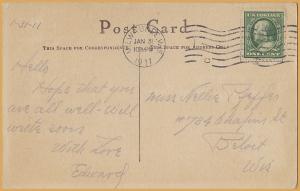 1-31-11
Post Card
THIS SPACE FOR CORRESPONDENCE
THIS SPACE FOR ADDRESS ONLY
JAN 31
1911
U.S. POSTAGE
ONE CENT
Hello
Hope that you
are all well - Will
write soon
With Love
Edward
Miss Nettie
Beloit
Wis